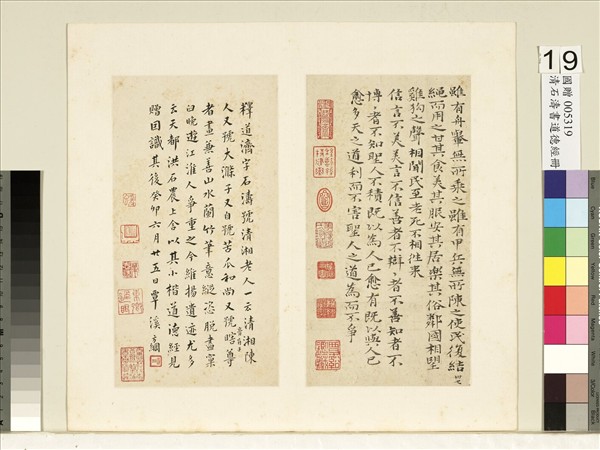 雖有舟轝無所乘之雖有甲兵無所陳之使民復結
繩而用之甘其食美其服安其居樂其俗鄰國相望
雞狗之聲相聞民至老死不相往来
信言不美美言不信善者不辯辯者不善知者不
博博者不知聖人不積既以為人已愈有既以與人已
愈多天之道利而不害聖人之道為而不爭
釋道濟字石濤號清湘老人一云清湘陳
人又號大滌子又自號苦瓜和尚又號瞎尊
者畫兼善山水蘭竹筆意縱恣脫盡窠
臼晚遊江淮人爭重之今維揚遺迹尤多
云天都洪石農上舍以其小楷道德經見
贈因識其後癸卯六月廿五日覃溪
19
國贈 005319
清石濤書道德經冊
Blue
Cyan
Green
Yellow
Red
Magenta
White
3/Color
Black